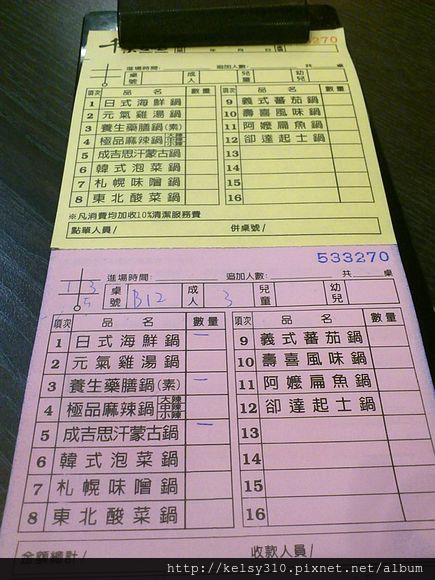 千 年 月 日 270
進場時間: 追加人數: 共 桌
桌號 成人 兒童 幼兒
項次 品名 數量 項次 品名 數量
1 日式海鮮鍋 9 義式蕃茄鍋
2 元氣雞湯鍋 10 壽喜風味鍋
3 養生藥膳鍋(素) 11 阿嬤扁魚鍋
4 極品麻辣鍋 大辣 中辣 小辣 12 卻達起士鍋
5 成吉思汗蒙古鍋 13
6 韓式泡菜鍋 14
7 札幌味噌鍋 15
8 東北酸菜鍋 16
※凡消費均加收10%清潔服務費
點單人員/ 併桌號/
533270
進場時間: 追加人數: 共 桌
1 3 5 桌號 B12 成人 3 兒童 幼兒
項次 品名 數量 項次 品名 數量
1 日式海鮮鍋 一 9 義式蕃茄鍋
2 元氣雞湯鍋 10 壽喜風味鍋
3 養生藥膳鍋(素) 一 11 阿嬤扁魚鍋
4 極品麻辣鍋 大辣 中辣 小辣 一 12 卻達起士鍋
5 成吉思汗蒙古鍋 13
6 韓式泡菜鍋 14
7 札幌味噌鍋 15
8 東北酸菜鍋 16
金額總計/ 收款人員/
http://kelsy310.pixnet.net/album